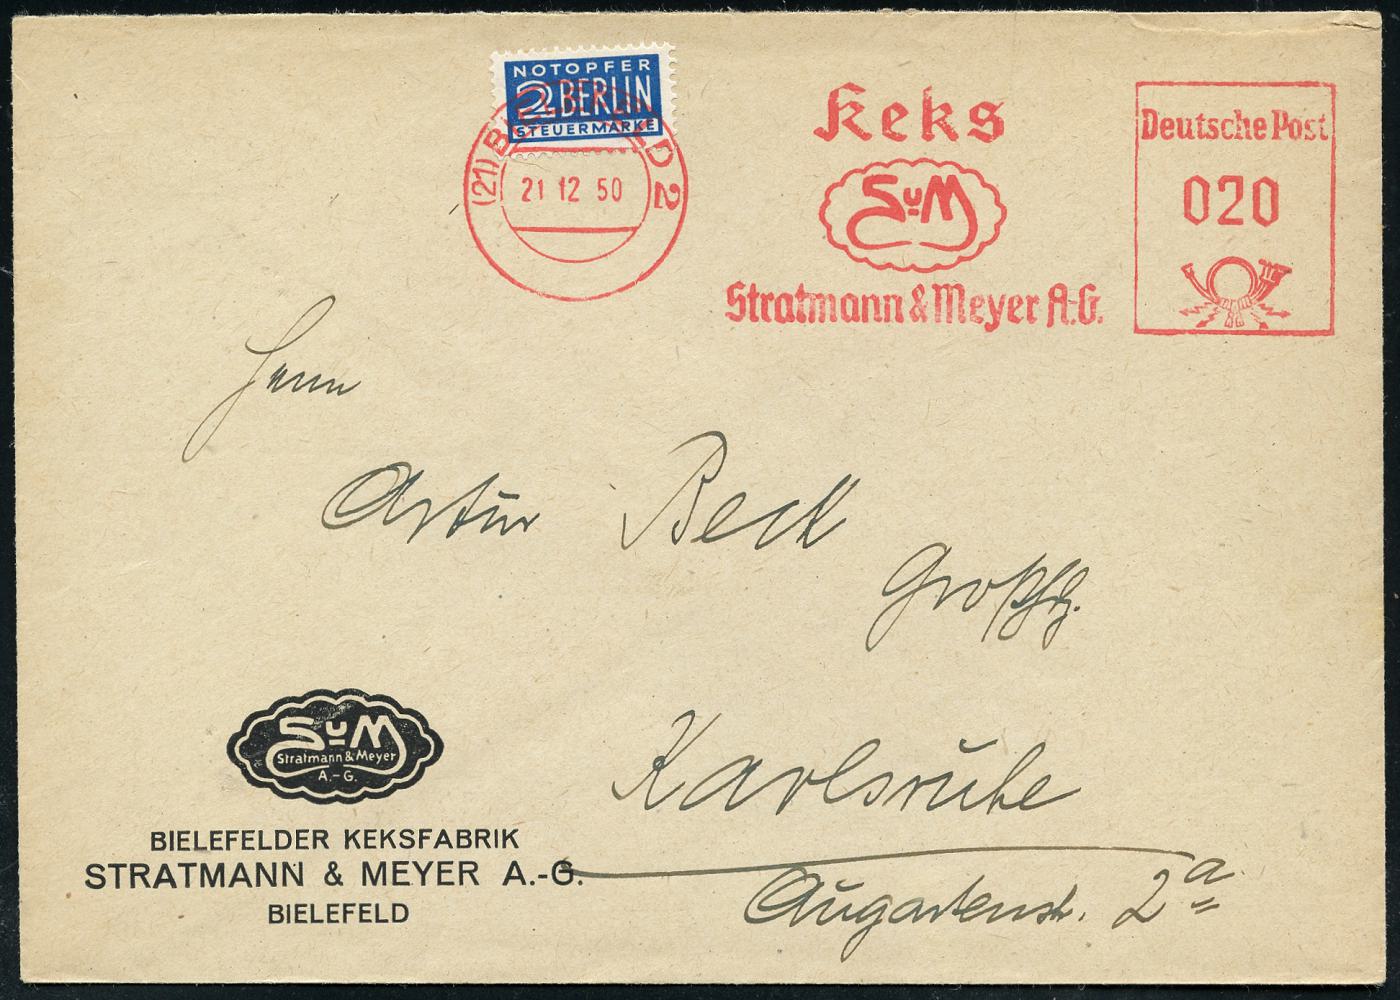 NOTOPFER
2 BERLIN
STEUERMARKE
(21) BIELEFELD 2
21 12 50
Keks
SuM
Stratmann & Meyer A.G.
Deutsche Post
020
Herrn
Artur Beck
Großhdg.
Karlsruhe
Augartenstr. 2a
SuM
Stratmann & Meyer
A.-G.
BIELEFELDER KEKSFABRIK
STRATMANN & MEYER A.-G.
BIELEFELD